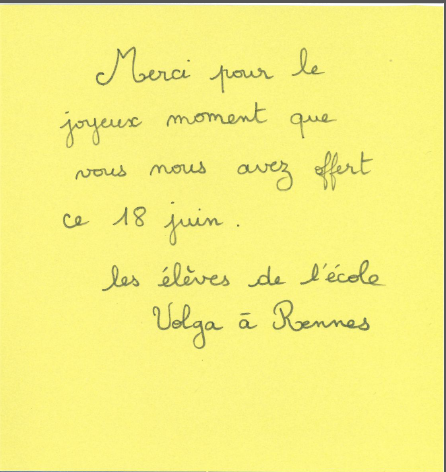 Merci pour le
joyeux moment que
vous nous avez offert
ce 18 juin.
les élèves de l'école
Volga à Rennes